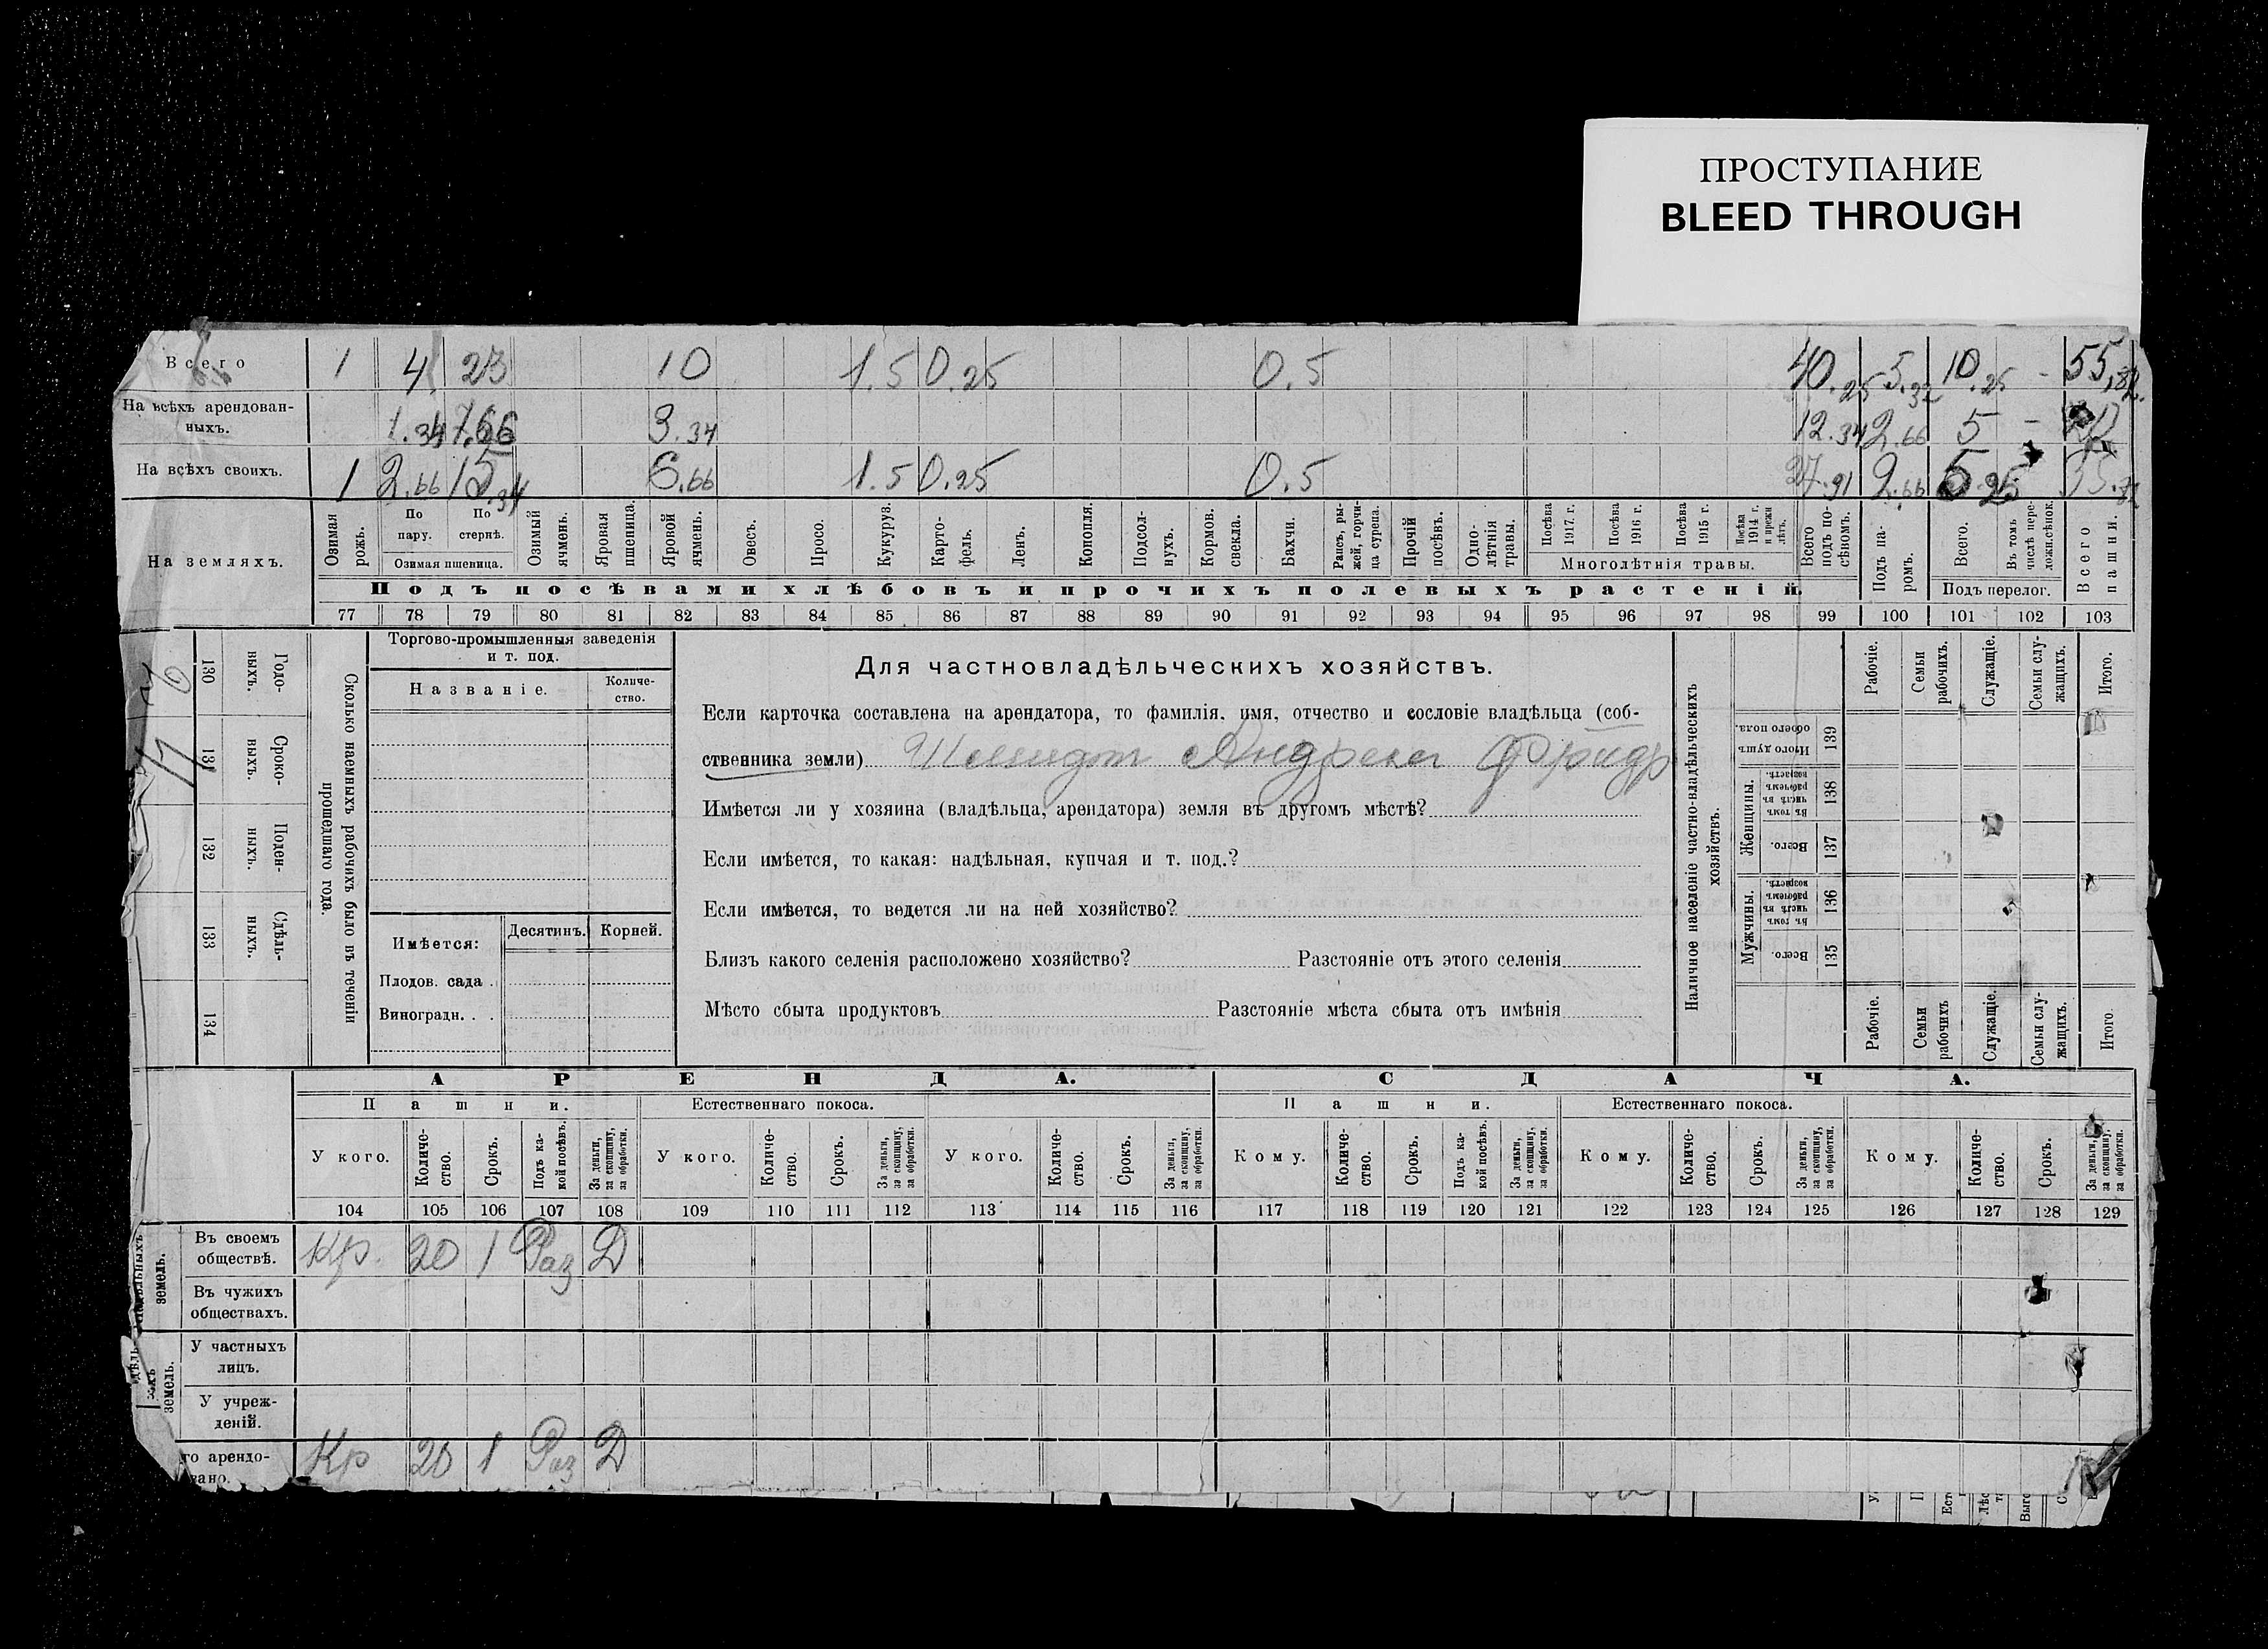 ПРОСТУПАНИЕ
BLEED THROUGH
Всего 1 4 23 10 1.5 0.25 0.5 40.25 5.32 10.25 - 55,82
На всѣхъ арендован-
ныхъ. 1.34 7.66 3.34 12.34 2.66 5 -
На всѣхъ своихъ. 1 2.66 15.34 6.66 1.5 0.25 0.5 27.91 2.66 5.25
На земляхъ.
Озимая рожь.
По пару.
По стернѣ.
Озимая пшеница.
Озимый ячмень.
Яровая пшеница.
Яровой ячмень.
Овесъ.
Просо.
Кукуруз.
Карто-
фель.
Ленъ.
Конопля.
Подсол-
нухъ.
Кормов. свекла.
Бахчи.
Рапсъ, ры-
жей, горчи-
ца сурепа.
Прочій посѣвъ.
Одно-
лѣтнія травы.
Посѣва 1917 г.
Посѣва 1916 г.
Посѣва 1915 г.
Посѣва 1914 г. и прежн лѣтъ.
Многолѣтнія травы.
Всего подъ по-
сѣвомъ.
Подъ па-
ромъ.
Всего.
Въ томъ числѣ пере-
ложн.сѣнок.
Подъ перелог.
Всего пашни.
Подъ посѣвами хлѣбовъ и прочихъ полевыхъ растеній.
77 78 79 80 81 82 83 84 85 86 87 88 89 90 91 92 93 94 95 96 97 98 99 100 101 102 103
130 Годо-
выхъ.
131 Сроко-
выхъ.
132 Поден-
ныхъ.
133 Сдѣль-
ныхъ.
134
Сколько наемныхъ рабочихъ было въ теченіи
прошедшаго года.
Торгово-промышленныя заведенія
и т. под.
Названіе.
Количе-
ство.
Имѣется:
Десятинъ. Корней.
Плодов. сада .
Виноградн. . .
Для частновладѣльческихъ хозяйствъ.
Если карточка составлена на арендатора, то фамилія, имя, отчество и сословіе владѣльца (соб-
ственника земли) Шмидт Андреи Фридр
Имѣется ли у хозяина (владѣльца, арендатора) земля въ другомъ мѣстѣ?
Если имѣется, то какая: надѣльная, купчая и т. под.?
Если имѣется, то ведется ли на ней хозяйство?
Близъ какого селенія расположено хозяйство? Разстояніе отъ этого селенія
Мѣсто сбыта продуктовъ Разстояніе мѣста сбыта отъ имѣнія
Наличное населеніе частно-владѣльческихъ
хозяйствъ.
Рабочіе.
Семьи рабочихъ.
Служащіе.
Семьи слу-
жащихъ.
Итого.
Итого душъ обоего пола. 139
Женщины.
Въ томъ числѣ въ рабочемъ возрастѣ. 138
Всего. 137
Мужчины.
Въ томъ числѣ въ рабочемъ возрастѣ. 136
Всего. 135
Рабочіе.
Семьи рабочихъ
Служащіе.
Семьи слу-
жащихъ.
Итого
АРЕНДА. СДАЧА.
Пашни. Естественнаго покоса. Пашни. Естественнаго покоса.
У кого. Количе-
ство. Срокъ. Подъ ка-
кой посѣвъ. За деньги, за скопщину, за обработки.
У кого. Количе-
ство. Срокъ. За деньги, за скопщину, за обработки.
У кого. Количе-
ство. Срокъ. За деньги, за скопщину, за обработки.
Кому. Количе-
ство. Срокъ. Подъ ка-
кой посѣвъ. За деньги, за скопщину, за обработки.
Кому. Количе-
ство. Срокъ. За деньги, за скопщину, за обработки.
Кому. Количе-
ство. Срокъ. За деньги, за скопщину, за обработки.
104 105 106 107 108 109 110 111 112 113 114 115 116 117 118 119 120 121 122 123 124 125 126 127 128 129
Въ своемъ
обществѣ. Кр. 20 1 Раз Д
Въ чужихъ
обществахъ.
земель.
У частныхъ
лицъ.
У учреж-
деній.
земель.
го арендо-
вано. Кр 20 1 Раз Д